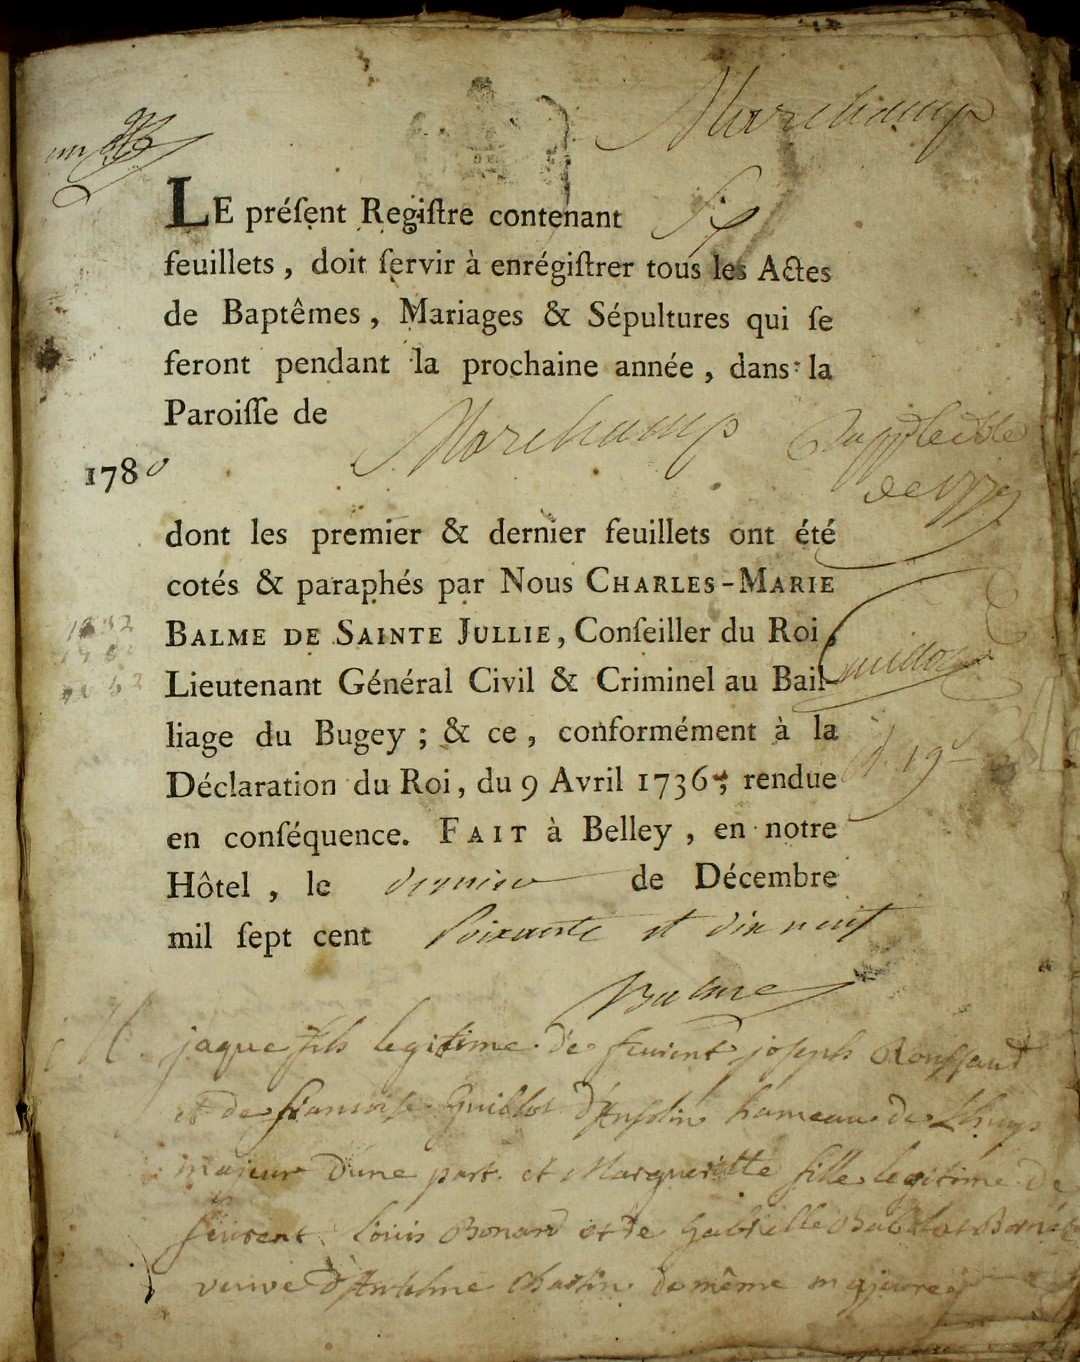 Marchamp
un
LE préſent Regiſtre contenant six
feuillets, doit ſervir à enrégiſtrer tous les Actes
de Baptêmes, Mariages & Sépultures qui ſe
feront pendant la prochaine année, dans la
Paroiſſe de Marchamp
1780
de 1779
dont les premier & dernier feuillets ont été
cotés & paraphés par Nous CHARLES-MARIE
BALME DE SAINTE JULLIE, Conſeiller du Roi,
Lieutenant Général Civil & Criminel au Bail-
liage du Bugey ; & ce, conformément à la
Déclaration du Roi, du 9 Avril 1736, rendue
en conſéquence. FAIT à Belley, en notre
Hôtel, le dernier de Décembre
mil ſept cent soixante et dix neuf
Balme
M. jaque fils legitime de joseph
et de francoise Guillot hameau de Lhuys
majeur d'une part. et Margueritte fille legitime de
Louis Bonard et de Gabrielle
veuve d'Antelme de même majeure